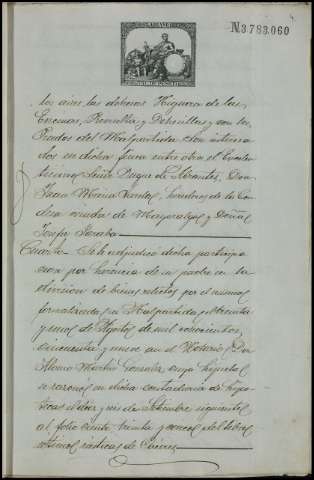 N3.783.060
los aires las dehesas Higuera de las
Encinas, Revuelta y Dehesillas, con los
Prados del Malpartida. Son interesa
dos en dicha finca entre otros el Excelen
tisimo Señor Duque de Abrantes, Don
Juan Maria Vargas, herederos de la Con
desa viuda de Mayoralgo y Doña
Josefa
Cuarto Se le adjudicó dicha participa
cion por herencia de su padre en la
division de bienes relictos por el mismo
formalizada en Malpartida, a treinta
y uno de Agosto de mil ochocientos
cincuenta y nueve ante el Notario Don
Alonso Martin Gonzalez cuya hijuela
se razonó en dicha contaduria de hipo
tecas el diez y seis de Setiembre siguiente
al folio ciento veinte y cinco del libro
de fincas rusticas de Cáceres